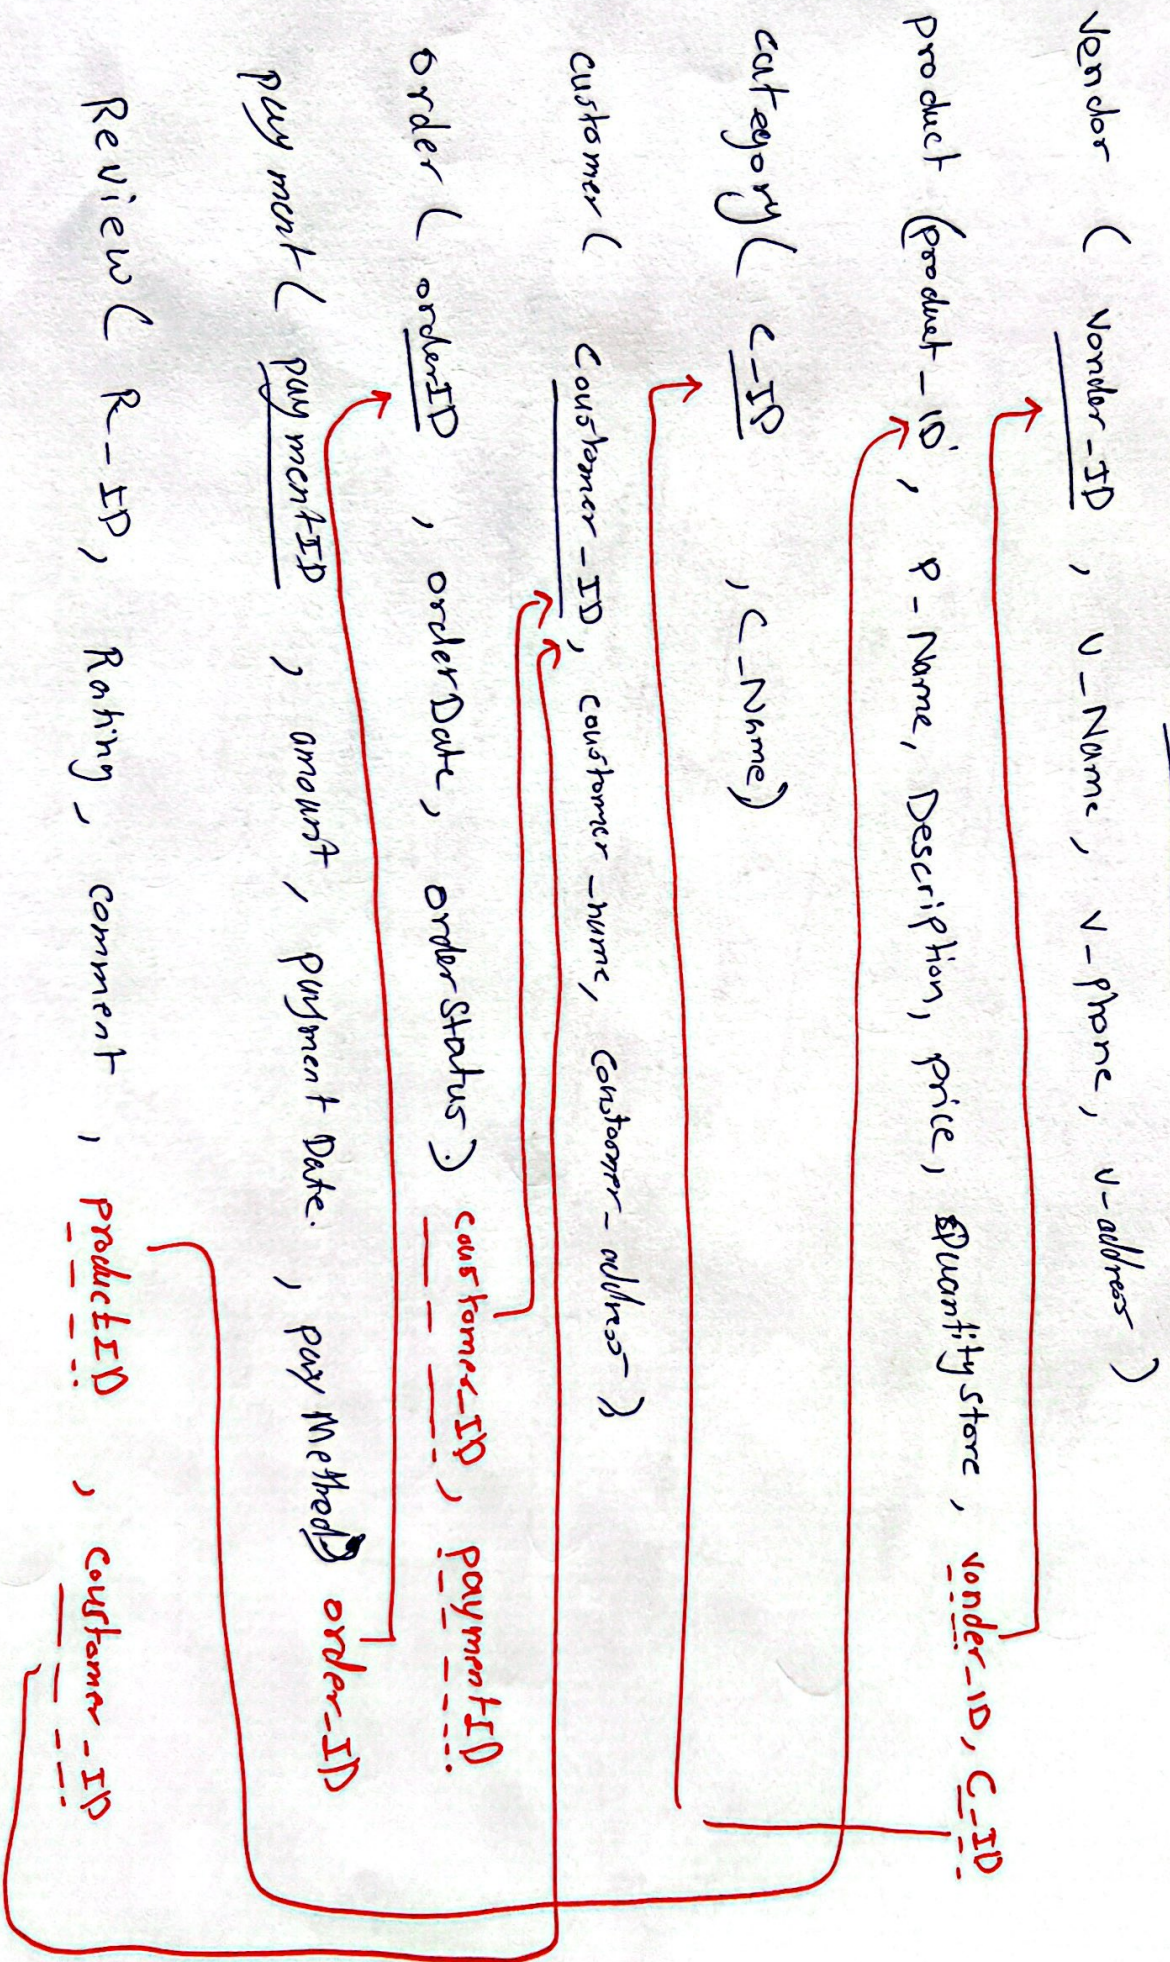 Vendor ( Vonder_ID , V_Name , V_Phone , V_address )
Product (product_ID , P_Name, Description, price, Quantitystore , Vonder_ID, C_ID
category( C_ID , C_Name)
customer( Coustomer_ID, coustomer_name, Constoomer_address)
order( orderID , orderDate, orderStatus). coustomer_ID, paymentID
payment( paymentID , amount, payment Date. , pay Method) order_ID
Review( R_ID, Rating, comment , productID , coustomer_ID